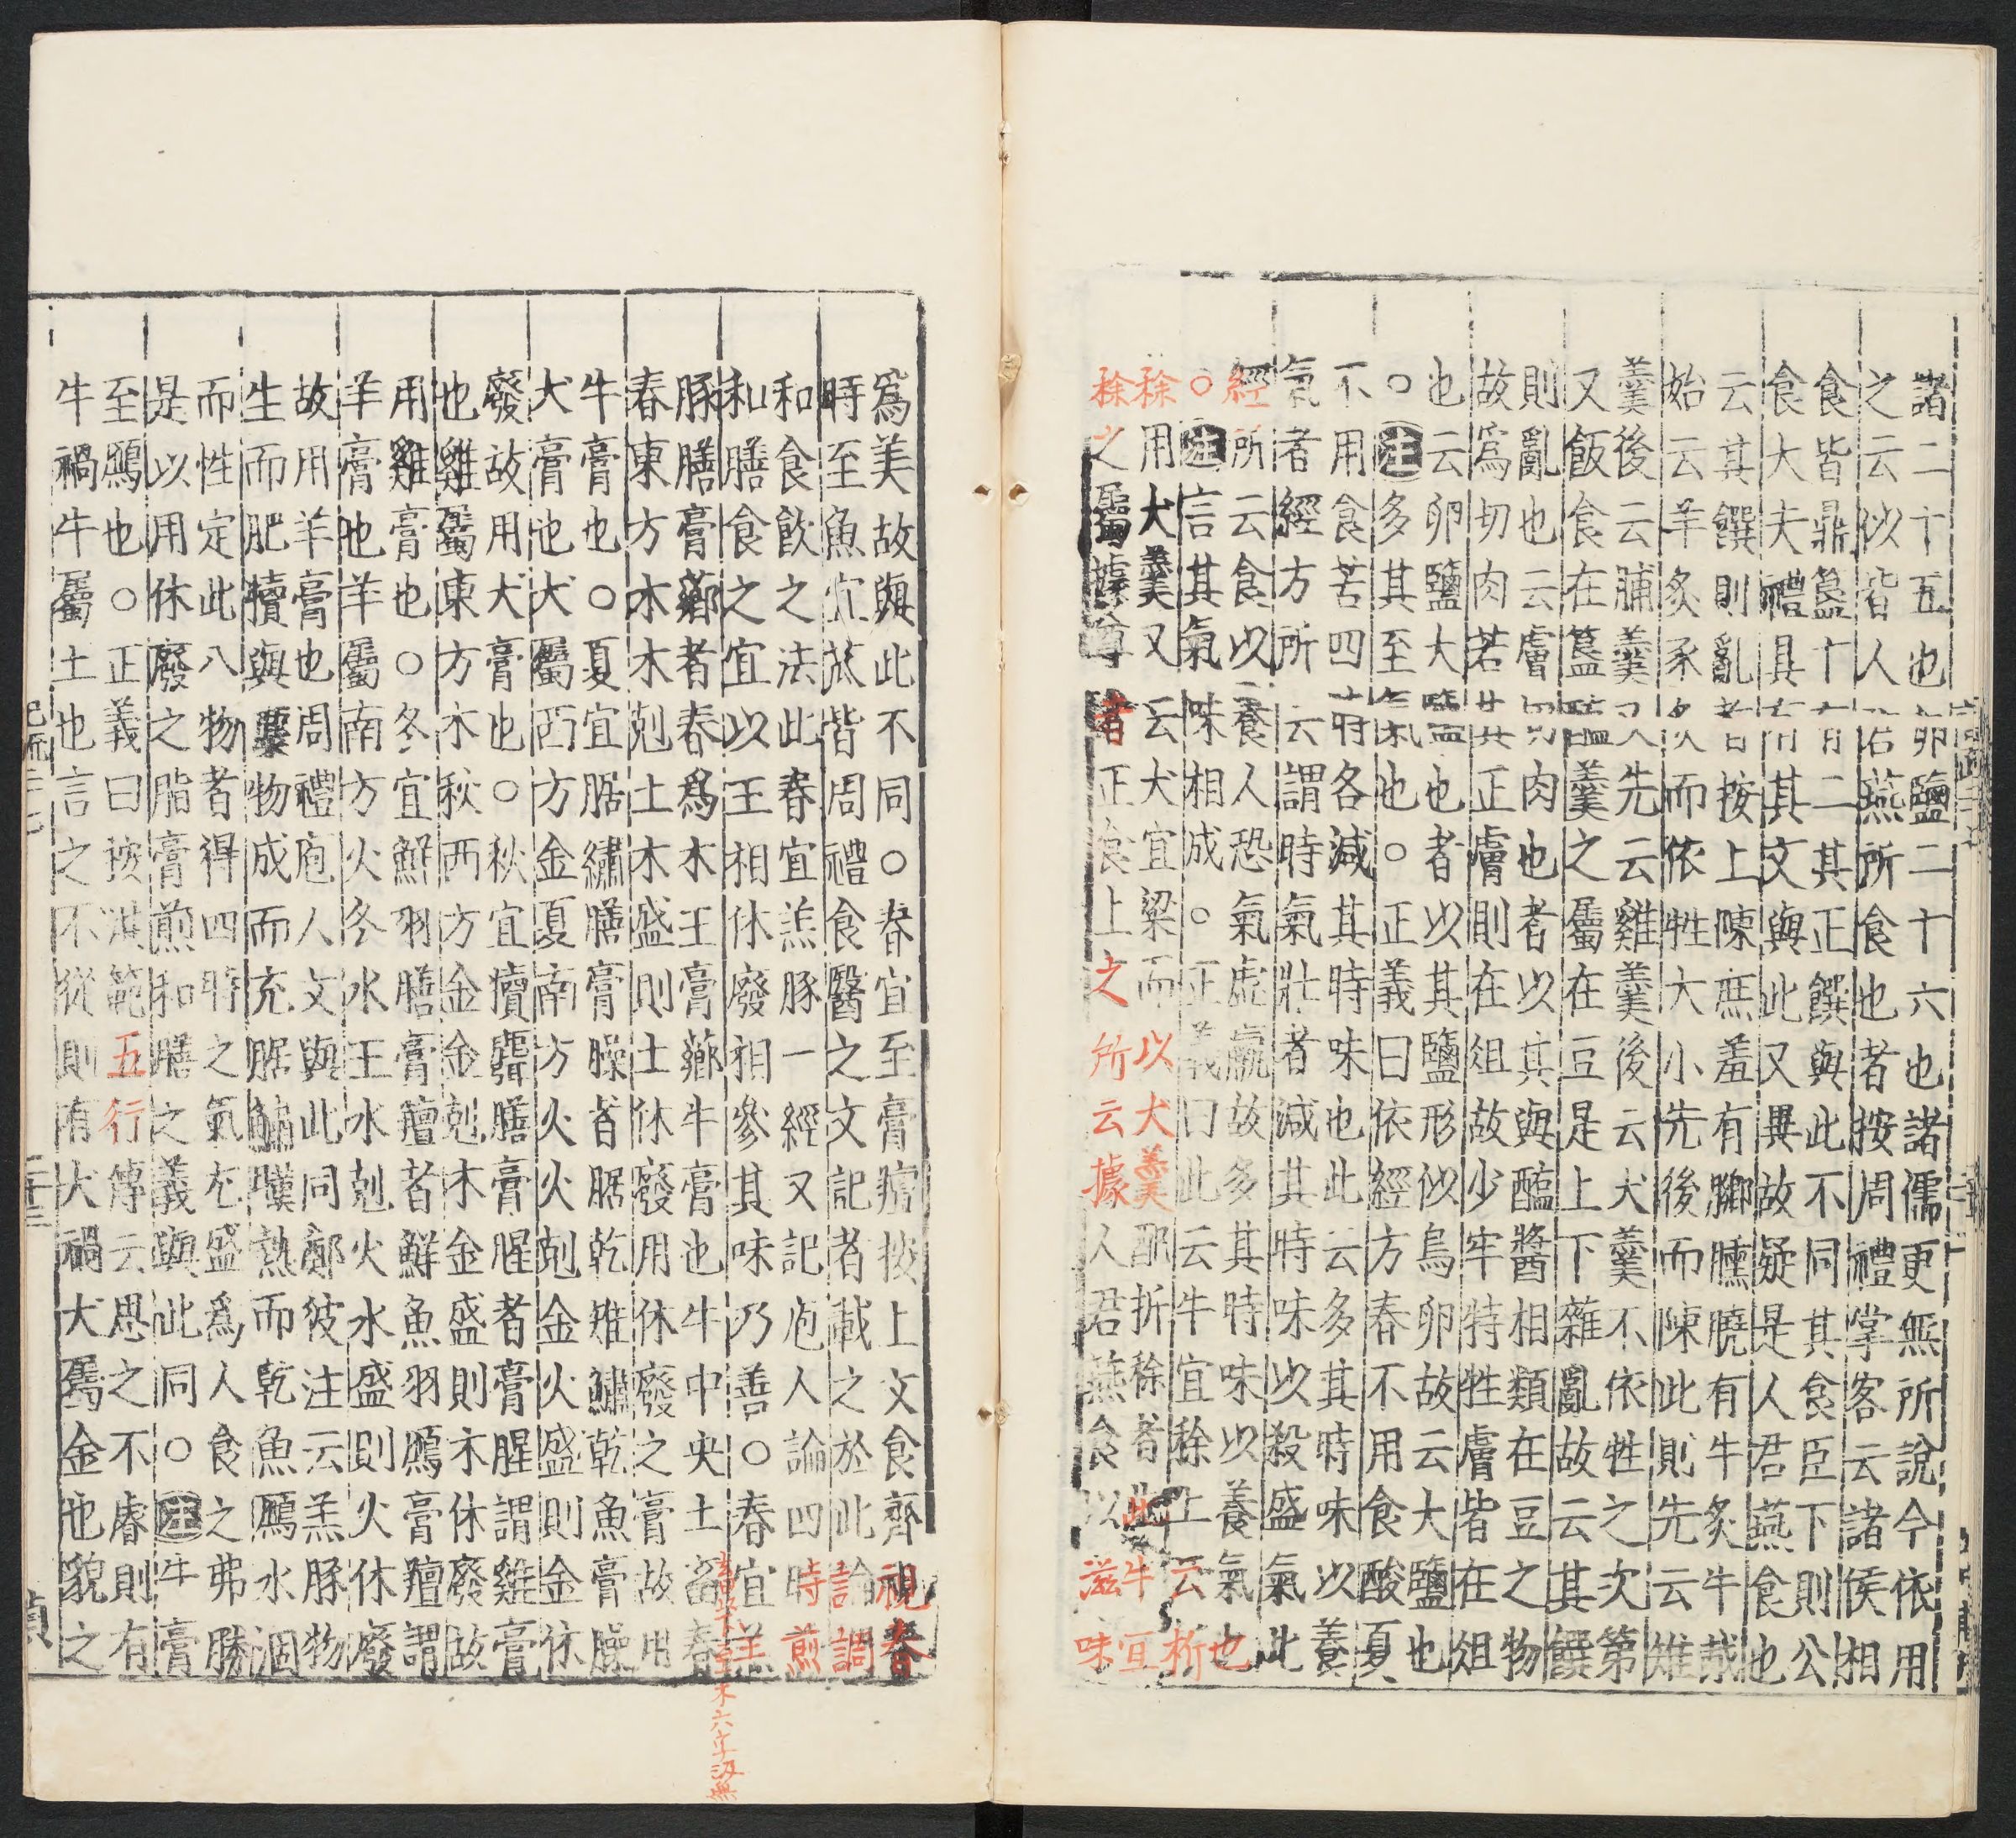 諸二十五也卵鹽二十六也諸儒更無所說今依用
之云以皆人君燕所食也者按周禮掌客云諸侯相
食皆鼎簋十有二其正饌與此不同其食臣下則公
食大夫禮具有其文與此又異故疑是人君燕食也
云其饌則亂者按上陳庶羞有膷臐膮有牛炙牛胾
始云羊炙豕炙而依牲大小先後而陳此則先云雉
羹後云脯羹又先云雞羹後云犬羹不依牲之次第
又飯食在簋醢羹之屬在豆是上下雜亂故云其饌
則亂也云膚切肉也者以其與醢醬相類在豆之物
故為切肉若其正膚則在俎故少牢特牲膚皆在俎
也云卵鹽大鹽也者以其鹽形似鳥卵故云大鹽也
○注多其至氣也○正義曰依經方春不用食酸夏
不用食苦四時各減其時味也此云多其時味以養
氣者經方所云謂時氣壯者減其時味以殺盛氣此
經所云食以養人恐氣虛羸故多其時味以養氣也
○注言其氣味相成○正義曰此云牛宜稌上云析
稌用犬羹又云犬宜粱而以犬羹配折稌者此牛宜
稌之屬據尊者正食上之所云據人君燕食以滋味
為美故與此不同○春宜至膏羶按上文食齊視春
時至魚宜苽皆周禮食醫之文記者載之於此論調
和食飲之法此春宜羔豚一經又記庖人論四時煎
和膳食之宜以王相休廢相參其味乃善○春宜羔
豚膳膏薌者春為木王膏薌牛膏也牛中央土畜春
春東方木木剋土木盛則土休廢用休廢之膏故用
牛膏也○夏宜腒鱐膳膏臊者腒乾雉鱐乾魚膏臊
犬膏也犬屬西方金夏南方火火剋金火盛則金休
廢故用犬膏也○秋宜犢麛膳膏腥者膏腥謂雞膏
也雞屬東方木秋西方金金剋木金盛則木休廢故
用雞膏也○冬宜鮮羽膳膏羶者鮮魚羽鴈膏羶謂
羊膏也羊屬南方火冬水王水剋火水盛則火休廢
故用羊膏也周禮庖人文與此同鄭彼注云羔豚物
生而肥犢與麛物成而充腒鱐暵熱而乾魚鴈水涸
而性定此八物者得四時之氣尤盛為人食之弗勝
是以用休廢之脂膏煎和膳之義與此同○注牛膏
至鴈也○正義曰按洪範五行傳云思之不睿則有
牛禍牛屬土也言之不從則有犬禍犬屬金也貌之
記疏三十七